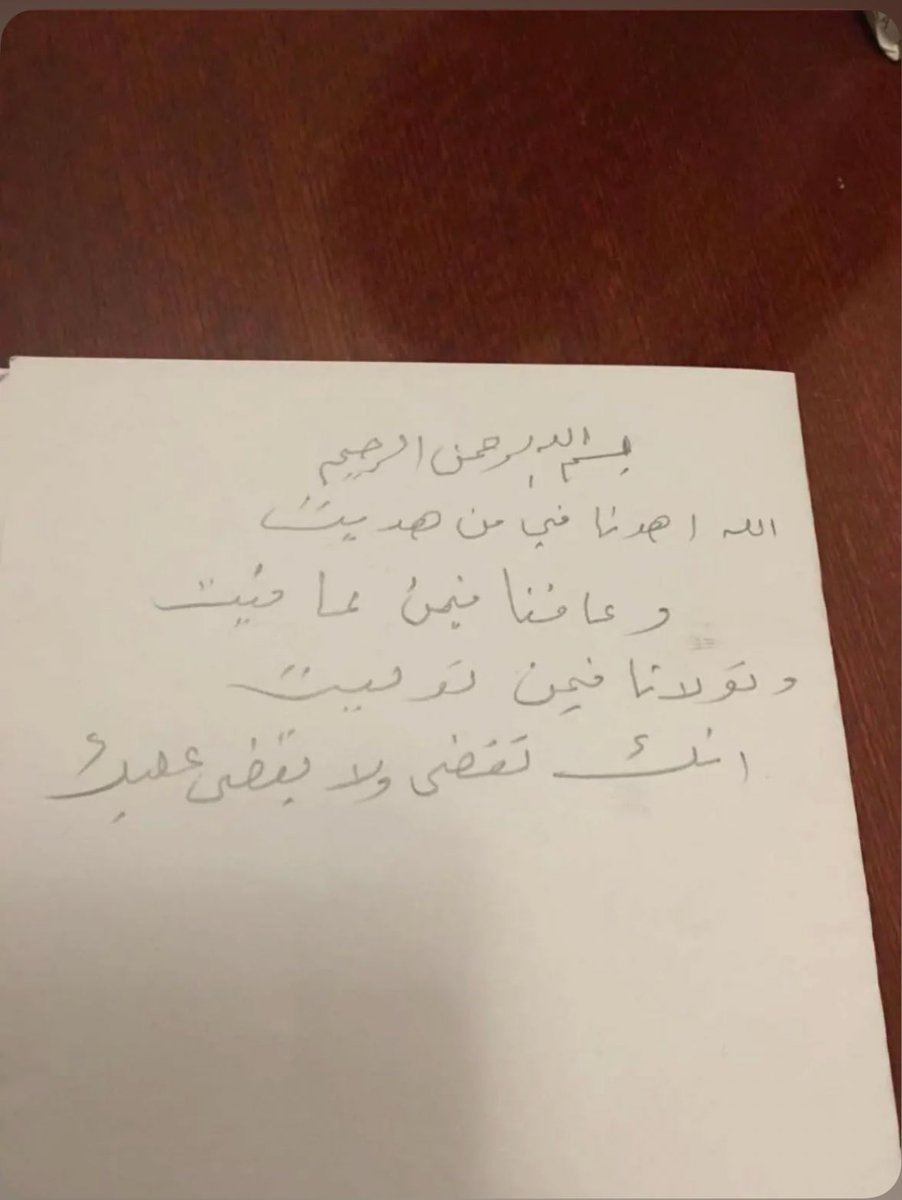 بسم الله الرحمن الرحيم
الله اهدنا في من هديت
وعافنا فيمن عافيت
وتولانا فيمن توليت
انك تقضى ولا يقضى عليك